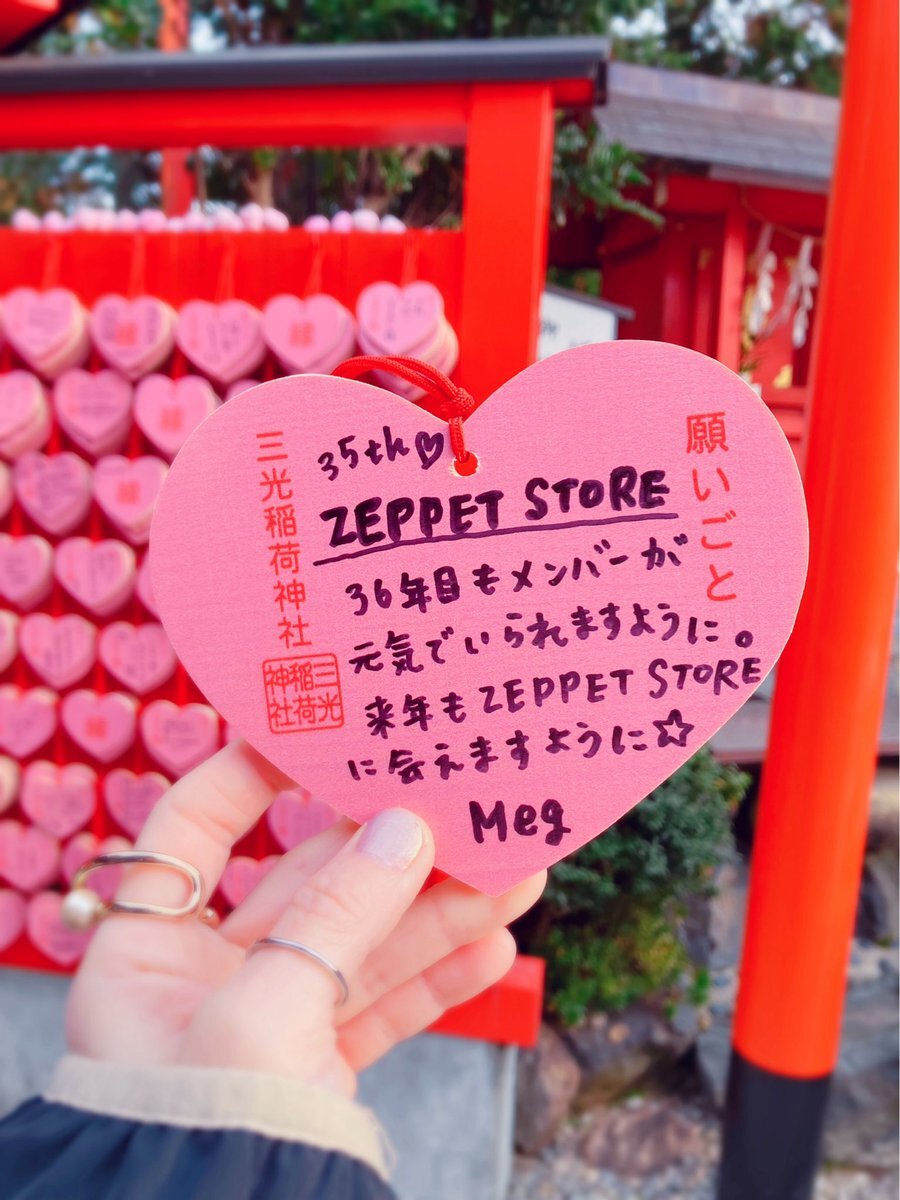 願いごと
35th♡
ZEPPET STORE
36年目もメンバーが
元気でいられますように。
来年もZEPPET STORE
に会えますように☆
Meg
三光稲荷神社
三光
稲荷
神社